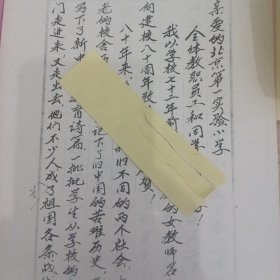 亲爱的北京第一实验小学
全体教职员工和同学
我以学校七十二年前 的女教师名
向建校八十周年致 贺!
八十年来 旧不同的两个社会
老的校舍 记下了旧中国的苦难历史
写下了新中 育诗篇一批批学生从学校的
门走进来又走出去他们不少人成了祖国各条战